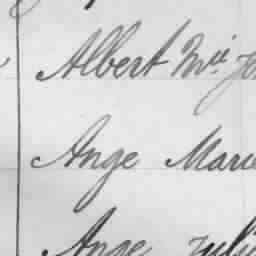 Albert Mie Jo
Ange Marie
Ange Julie